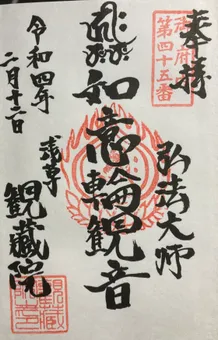 奉拝
第四十五番
弘法大師
如意輪観音
浅草
観蔵院
令和四年
二月十二日